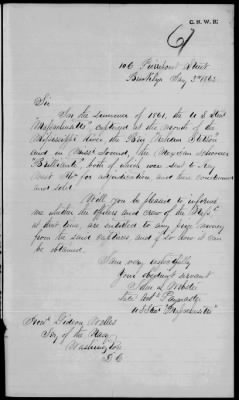 C. S. W. R.
6
106 Pierrepont Street
Brooklyn May 3rd 1863
Sir
In the summer of 1861, the U.S. Str
"Massachusetts" captured at the mouth of the
Mississippi river the Brig
and in Miss Sound, the Mexican schooner
"Brilliante", both of which were sent to Key
West Fla for adjudication and there condemned
and sold.
Will you be pleased to inform
me whether the officers and crew of the Massts
at that time, are entitled to any prize money
from the said captures, and if so how it can
be obtained.
I am very respectfully
Your obedient servant
John L.
Late Act Paymaster
U.S. Str "Massachusetts"
Honl Gideon Welles
Secy of the Navy
Washington
D.C